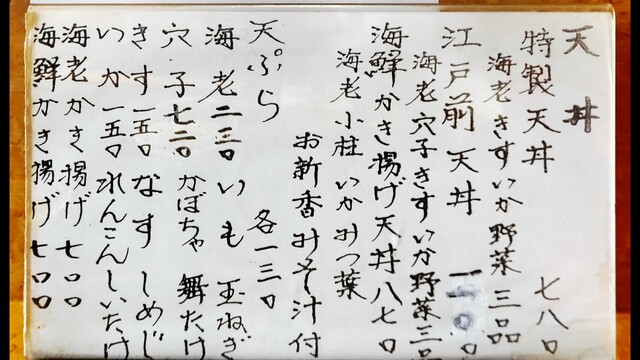 天丼
特製天丼 七八〇
海老きすいか野菜三品
江戸前天丼 一一〇〇
海老穴子きすいか野菜三品
海鮮かき揚げ天丼八七〇
海老小柱いかみつ葉
お新香みそ汁付
天ぷら 各一三〇
海老二三〇いも玉ねぎ
穴子七二〇かぼちゃ舞たけ
きす一五〇なすしめじ
いか一五〇れんこんしいたけ
海老かき揚げ七〇〇
海鮮かき揚げ七〇〇